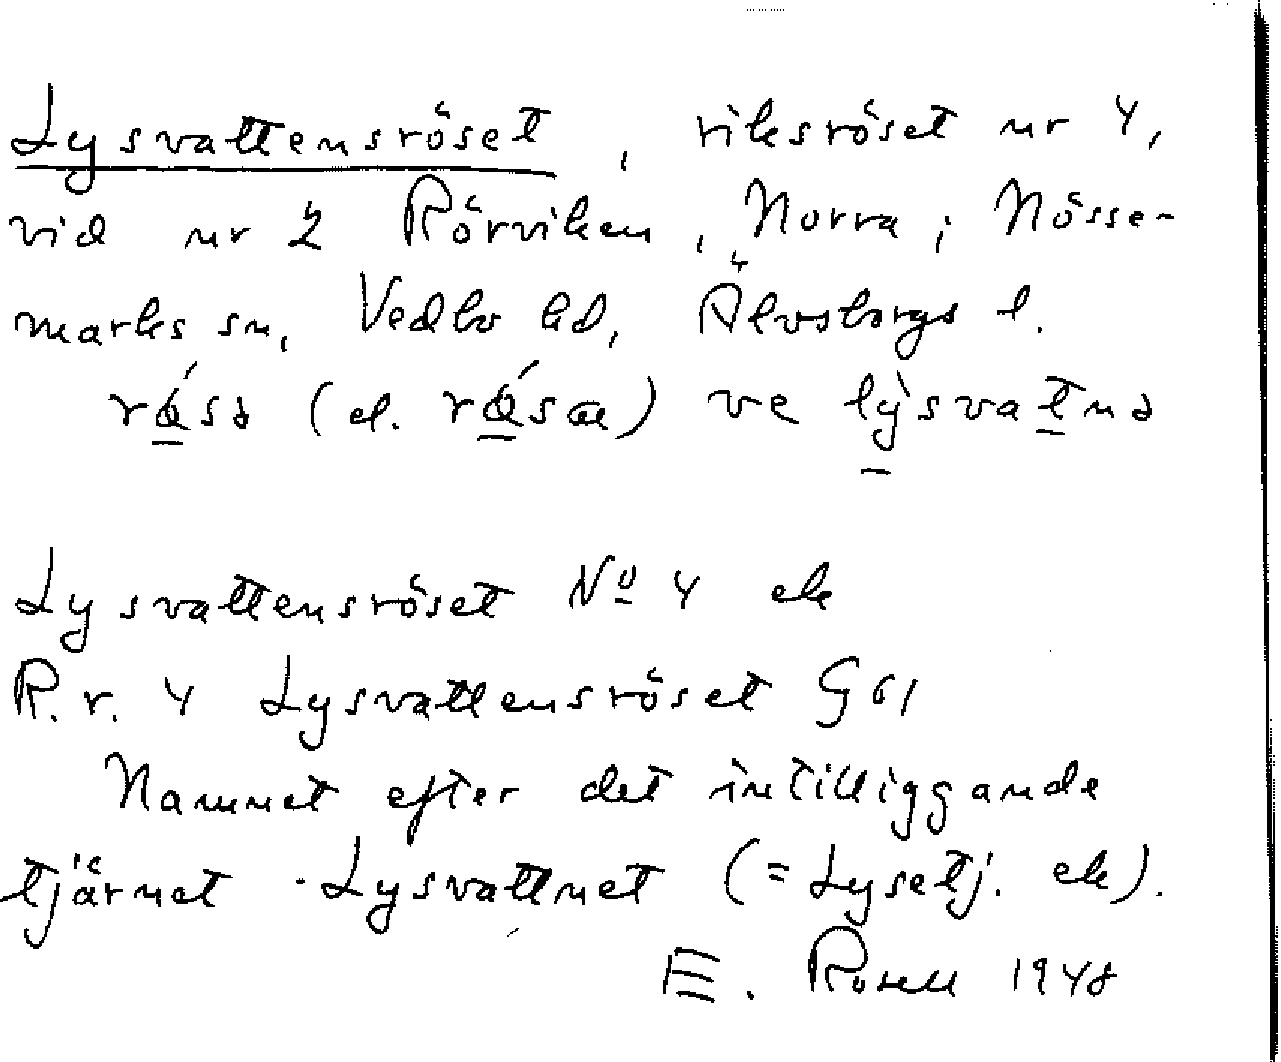 Lysvattensröset, riksröset nr 4,
vid nr 2 Rörviken, Norra, i Nösse-
marks sn, Vedbo hd, Älvsborgs l.
(el. ve
Lysvattensröset Nº 4 ek
R.r. 4 Lysvattensröset G 61
Namnet efter det intilliggande
tjärnet Lysvattnet (= Lysetj. ek).
E. Rosell 1948